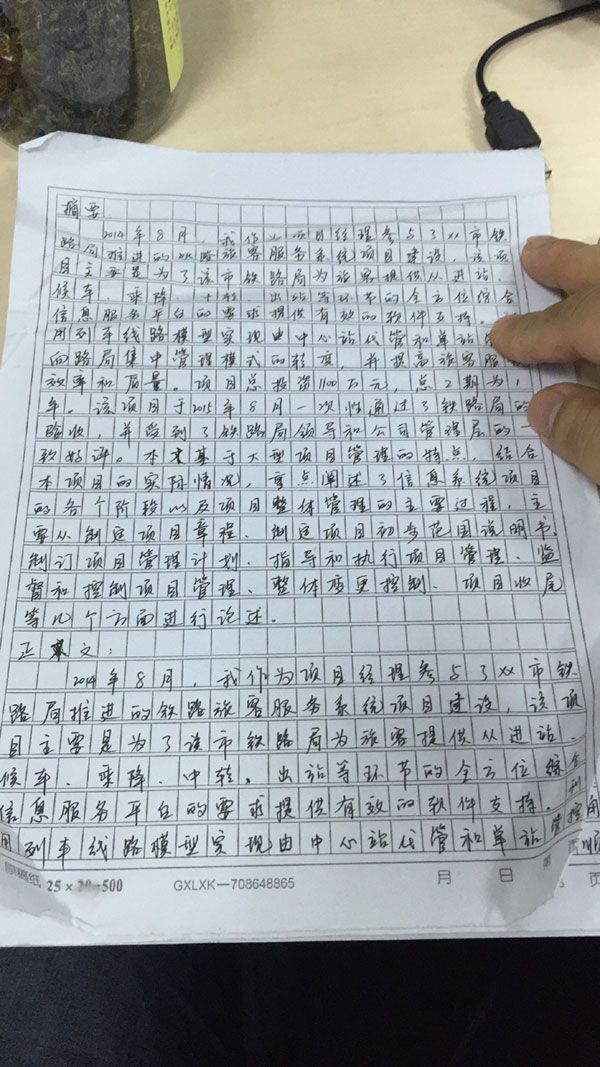 摘要
2014年8月,我作为项目经理参与了xx市铁
路局推进的铁路旅客服务系统项目建设,该项
目主要是为了该市铁路局为旅客提供从进站、
候车、乘降、中转、出站等环节的全方位综合
信息服务平台的要求提供有效的软件支持。
用列车线路模型实现由中心站代管和单站
向路局集中管理模式的转度,并提高旅客服
效率和质量。项目总投资1100万元,总工期为1
年。该项目于2015年8月一次性通过了铁路局的
验收,并受到了铁路局领导和公司管理层的一
致好评。本文基于大型项目管理的特点,结合
本项目的实际情况,重点阐述了信息系统项目
的各个阶段以及项目整体管理的主要过程,主
要从制定项目章程、制定项目初步范围说明书、
制订项目管理计划、指导和执行项目管理、监
督和控制项目管理、整体变更控制、项目收尾
等几个方面进行论述。
正文:
2014年8月,我作为项目经理参与了xx市铁
路局推进的铁路旅客服务系统项目建设,该项
目主要是为了该市铁路局为旅客提供从进站、
候车、乘降、中转、出站等环节的全方位综合
信息服务平台的要求提供有效的软件支持。利
用列车线路模型实现由中心站代管和单站管控
25×20=500 GXLXK—708648865 月 日 第 页